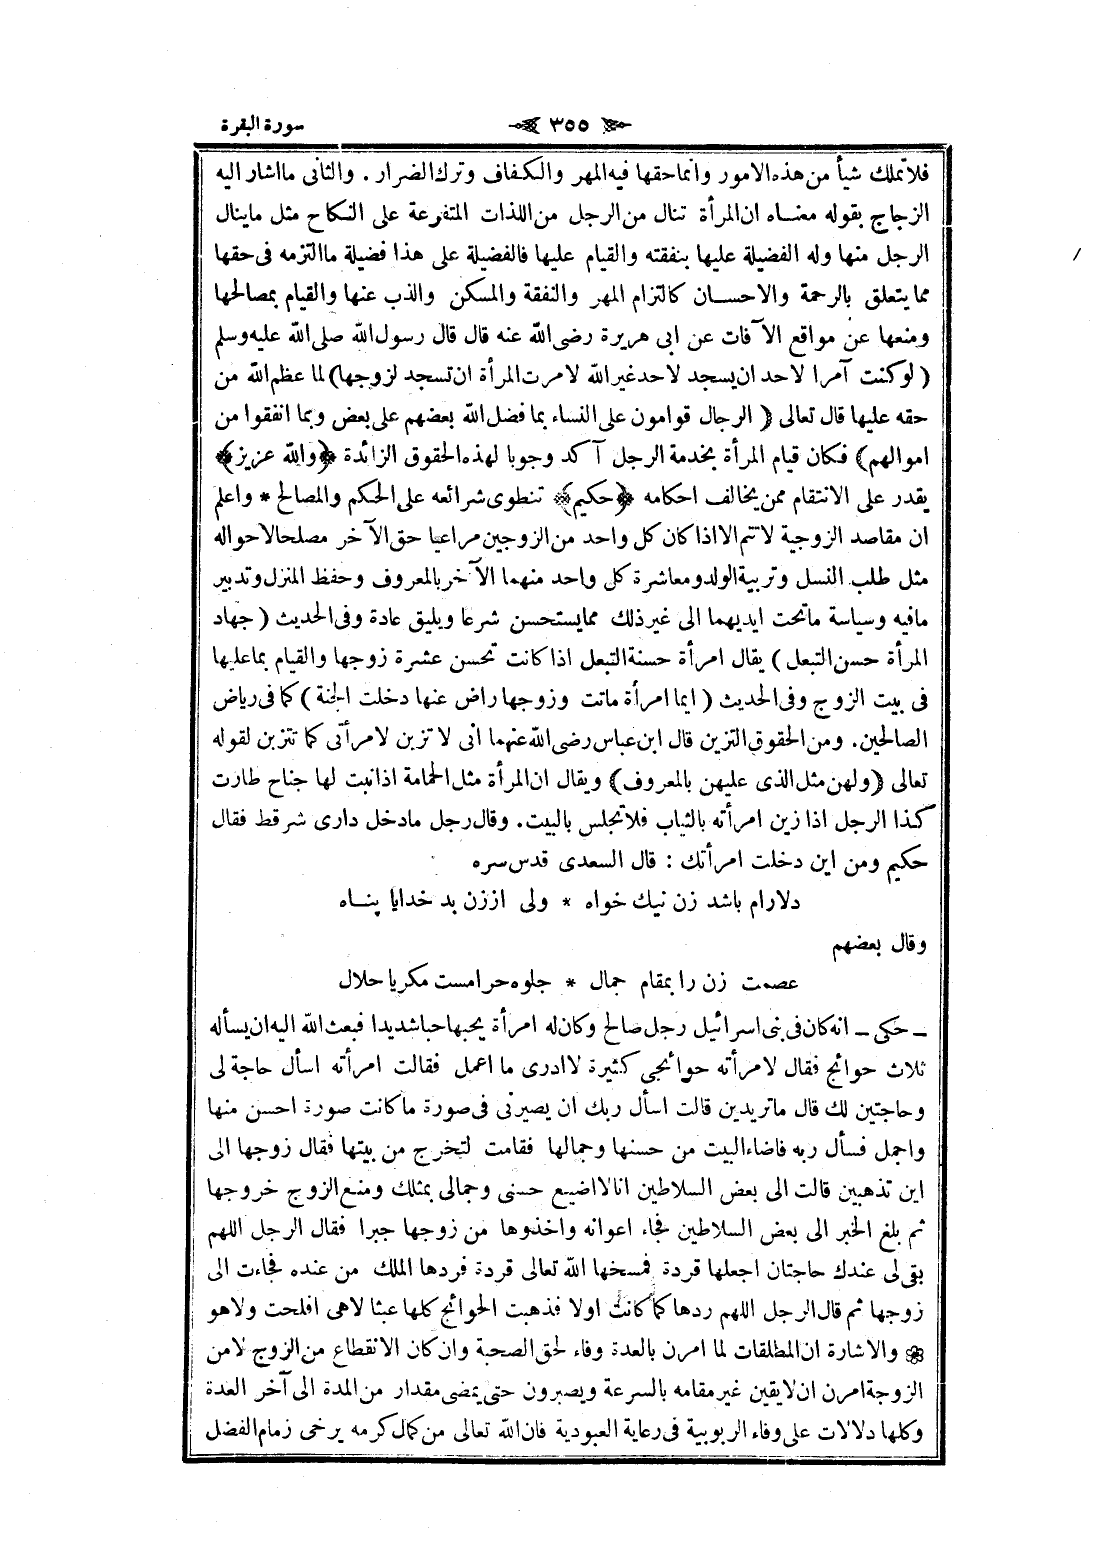 سورة البقرة ٣٥٥
فلا تملك شيأ من هذه الامور وانما حقها فيه المهر والكفاف وترك الضرار . والثانى ما اشار اليه
الزجاج بقوله معناه ان المرأة تنال من الرجل من اللذات المتفرعة على النكاح مثل ما ينال
الرجل منها وله الفضيلة عليها بنفقته والقيام عليها فالفضيلة على هذا فضيلة ما التزمه فى حقها
مما يتعلق بالرحمة والاحسان كالتزام المهر والنفقة والمسكن والذب عنها والقيام بمصالحها
ومنعها عن مواقع الآفات عن ابى هريرة رضى الله عنه قال قال رسول الله صلى الله عليه وسلم
( لو كنت آمرا لاحد ان يسجد لاحد غير الله لامرت المرأة ان تسجد لزوجها ) لما عظم الله من
حقه عليها قال تعالى ﴿ الرجال قوامون على النساء بما فضل الله بعضهم على بعض وبما انفقوا من
اموالهم ﴾ فكان قيام المرأة بخدمة الرجل آكد وجوبا لهذه الحقوق الزائدة ﴿ والله عزيز ﴾
يقدر على الانتقام ممن يخالف احكامه ﴿ حكيم ﴾ تنطوى شرائعه على الحكم والمصالح * واعلم
ان مقاصد الزوجية لا تتم الا اذا كان كل واحد من الزوجين مراعيا حق الآخر مصلحا لاحواله
مثل طلب النسل وتربية الولد ومعاشرة كل واحد منهما الآخر بالمعروف وحفظ المنزل وتدبير
ما فيه وسياسة ما تحت ايديهما الى غير ذلك مما يستحسن شرعا ويليق عادة وفى الحديث ( جهاد
المرأة حسن التبعل ) يقال امرأة حسنة التبعل اذا كانت تحسن عشرة زوجها والقيام بما عليها
فى بيت الزوج وفى الحديث ( ايما امرأة ماتت وزوجها راض عنها دخلت الجنة ) كما فى رياض
الصالحين . ومن الحقوق التزين قال ابن عباس رضى الله عنهما انى لا تزين لامرأتى كما تتزين لقوله
تعالى ﴿ ولهن مثل الذى عليهن بالمعروف ﴾ ويقال ان المرأة مثل الحمامة اذا نبت لها جناح طارت
كذا الرجل اذا زين امرأته بالثياب فلا تجلس بالبيت . وقال رجل ما دخل دارى شر قط فقال
حكيم ومن اين دخلت امرأتك : قال السعدى قدس سره
دلارام باشد زن نيك خواه * ولى اززن بد خدايا پناه
وقال بعضهم
عصمت زن را بمقام جمال * جلوه حرامست مكر يا حلال
ـ حكى ـ انه كان فى بنى اسرائيل رجل صالح وكان له امرأة يحبها حبا شديدا فبعث الله اليه ان يسأله
ثلاث حوائج فقال لامرأته حوائجى كثيرة لا ادرى ما اعمل فقالت امرأته اسأل حاجة لى
وحاجتين لك قال ما تريدين قالت اسأل ربك ان يصيرنى فى صورة ما كانت صورة احسن منها
واجمل فسأل ربه فاضاء البيت من حسنها وجمالها فقامت لتخرج من بيتها فقال زوجها الى
اين تذهبين قالت الى بعض السلاطين انا لا اضيع حسنى وجمالى بمثلك ومنع الزوج خروجها
ثم بلغ الخبر الى بعض السلاطين فجاء اعوانه واخذوها من زوجها جبرا فقال الرجل اللهم
بقى لى عندك حاجتان اجعلها قردة فمسخها الله تعالى قردة فردها الملك من عنده فجاءت الى
زوجها ثم قال الرجل اللهم ردها كما كانت اولا فذهبت الحوائج كلها عبثا لا هى افلحت ولا هو
❁ والاشارة ان المطلقات لما امرن بالعدة وفاء لحق الصحبة وان كان الانقطاع من الزوج لا من
الزوجة امرن ان لا يقين غير مقامه بالسرعة ويصبرون حتى يمضى مقدار من المدة الى آخر العدة
وكلها دلالات على وفاء الربوبية فى رعاية العبودية فان الله تعالى من كمال كرمه يرخى زمام الفضل